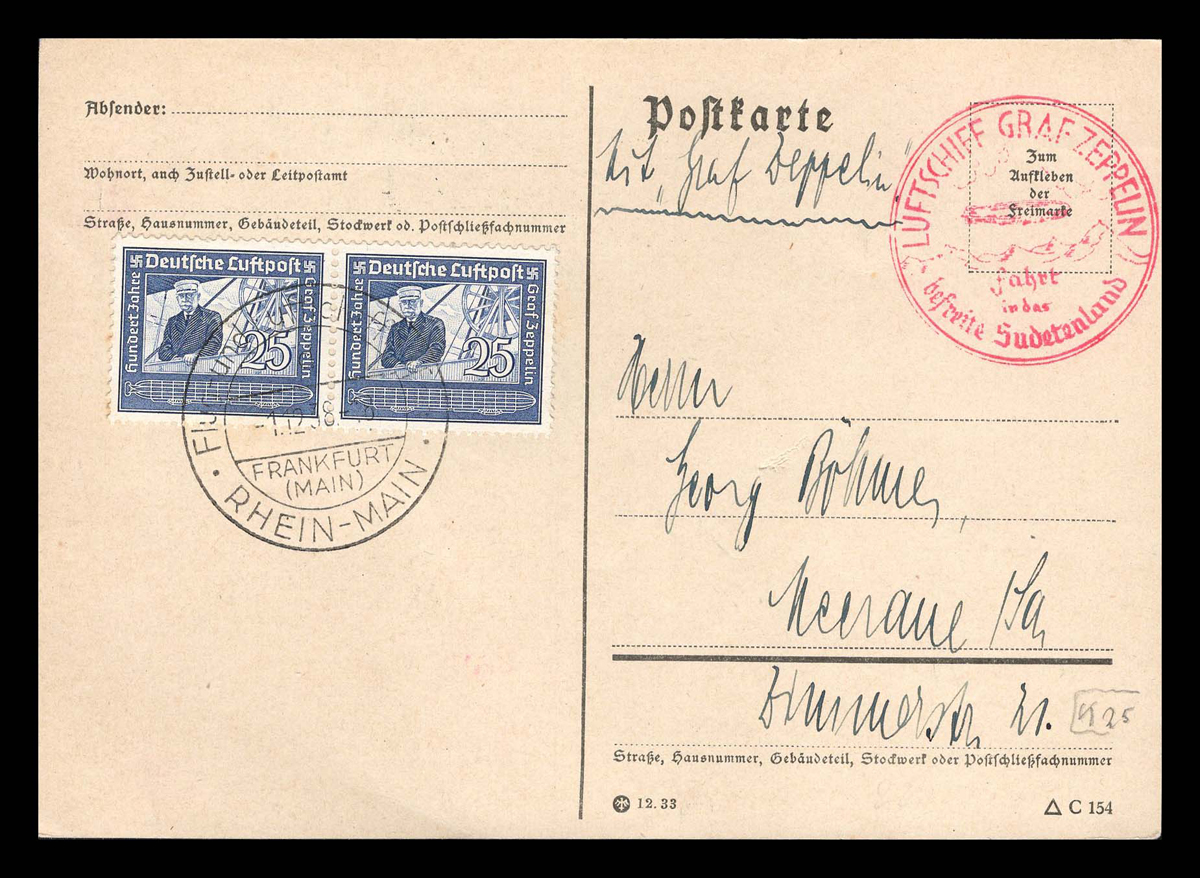 Absender:
Wohnort, auch Zustell- oder Leitpostamt
Straße, Hausnummer, Gebäudeteil, Stockwerk od. Postschließfachnummer
Deutsche Luftpost
Hundert Jahre
Graf Zeppelin
25
Deutsche Luftpost
Hundert Jahre
Graf Zeppelin
25
-1.12.38
FRANKFURT
(MAIN)
RHEIN-MAIN
Postkarte
Mit "Graf Zeppelin"
Zum
Aufkleben
der
Freimarke
LUFTSCHIFF GRAF ZEPPELIN
Fahrt
in das
befreite Sudetenland
Herrn
Georg Böhme,
Meerane /Sa
21.
25
Straße, Hausnummer, Gebäudeteil, Stockwerk oder Postschließfachnummer
12.33
C 154